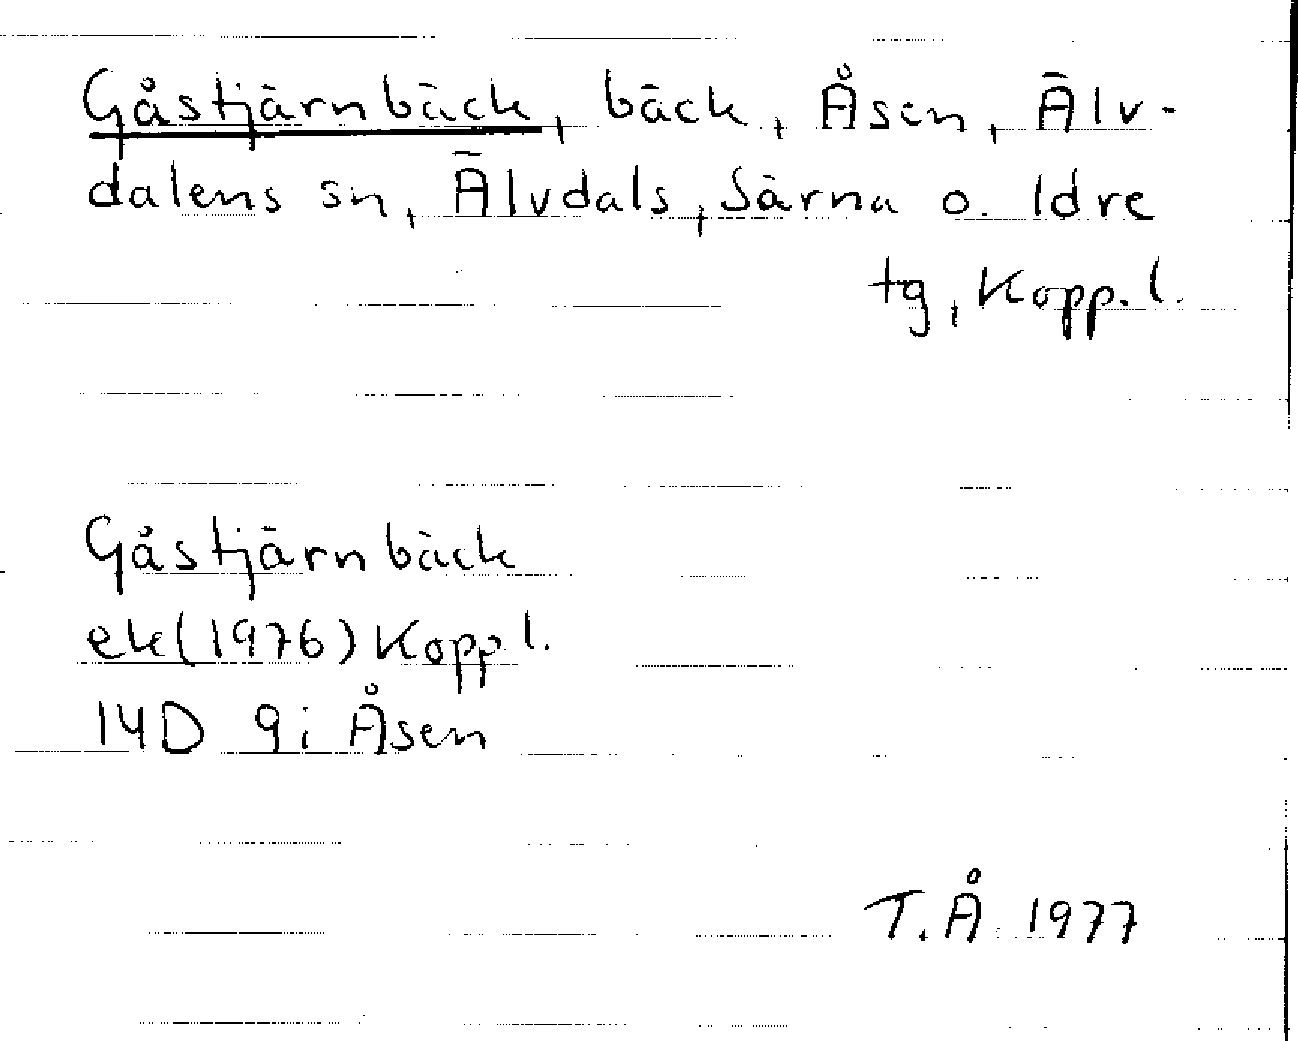 Gåstjärnbäck, bäck, Åsen, Älv-
dalens sn, Älvdals, Särna o. Idre
tg, Kopp. l.
Gåstjärnbäck
ek(1976) Kopp l.
14D 9i Åsen
T.Å. 1977